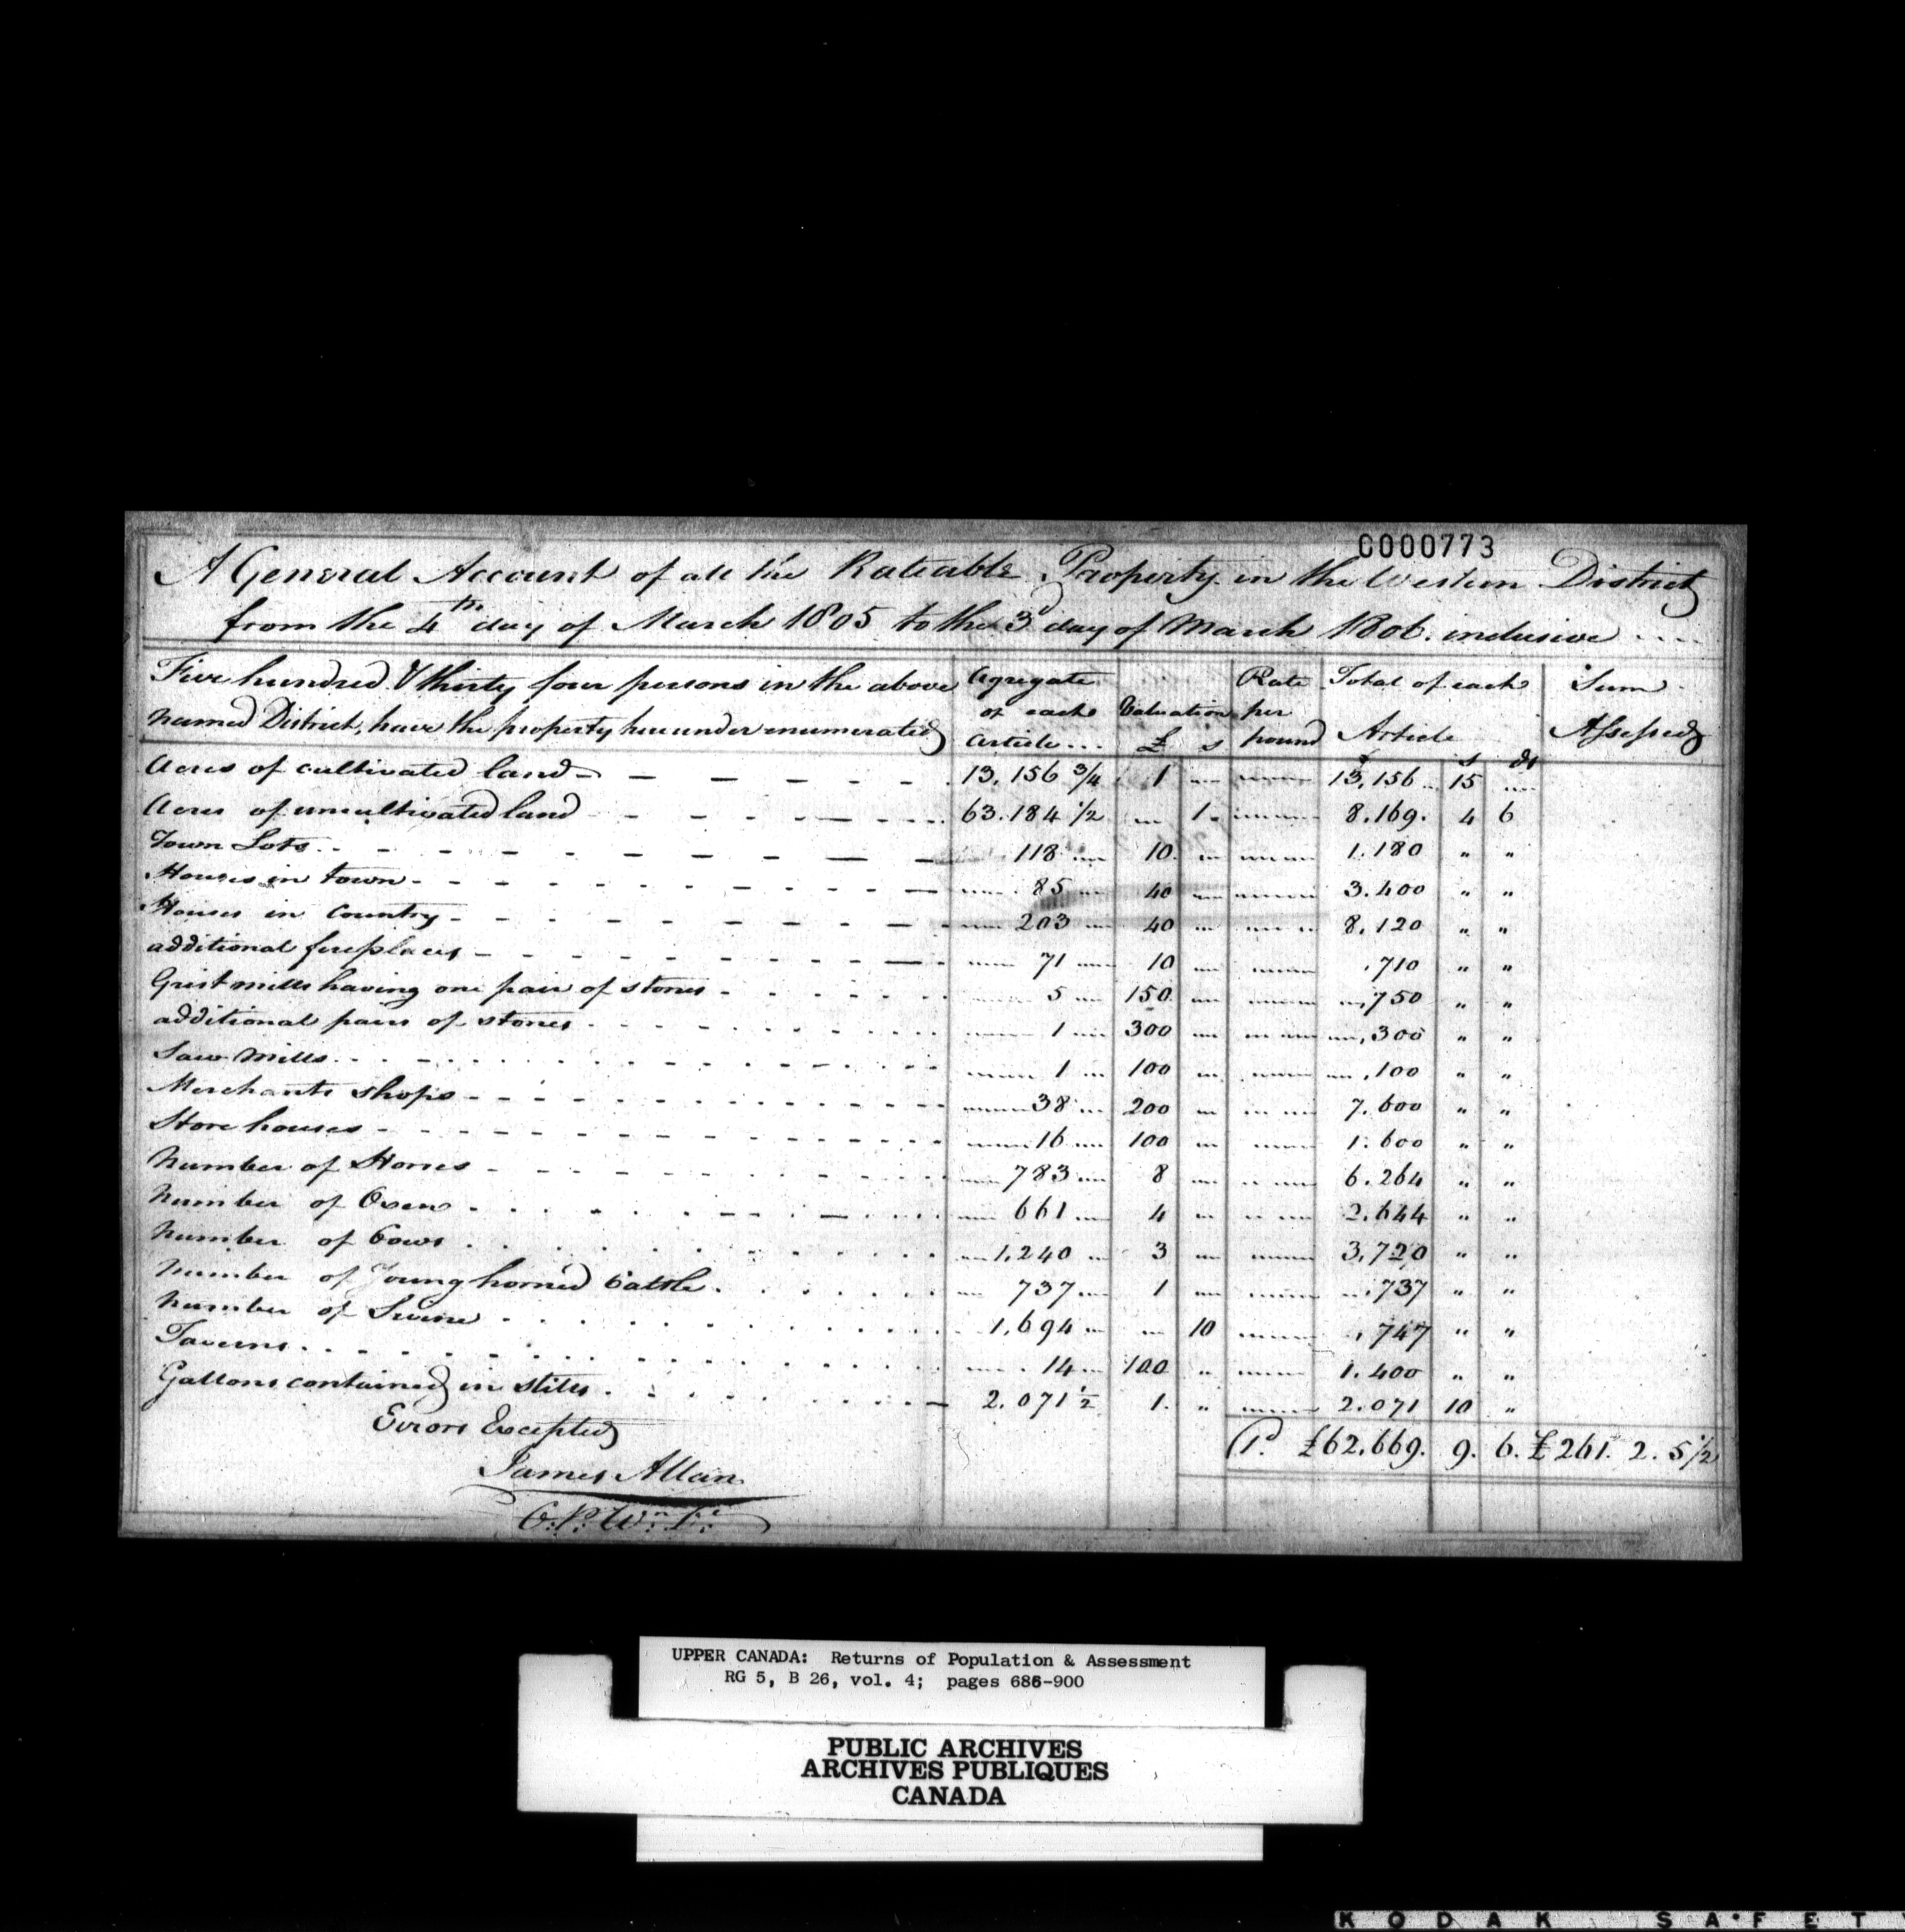 C000773
A General Account of all the Rateable Property in the Western District
from the 4th day of March 1805 to the 3d day of March 1806. inclusive ....
Five hundred & thirty four persons in the above named District, have the property hereunder enumerated | Agregate of each Article... | Valuation £ s | Rate per pound | Total of each Article £ s ds | Sum Assessed
Acres of cultivated land 13,156 3/4 1 13,156 15
Acres of uncultivated land 63.184 1/2 1. 8.169. 4 6
Town Lots 118 10 1.180 " "
Houses in town 85 40 3.400 " "
Houses in Country 203 40 8.120 " "
additional fireplaces 71 10 710 " "
Grist mills having one pair of stones 5 150 750 " "
additional pairs of stones 1 300 300 " "
Saw Mills 1 100 100 " "
Merchants shops 38 200 7.600 " "
Store houses 16 100 1.600 " "
Number of Horses 783 8 6.264 " "
Number of Oxen 661 4 2.644 " "
Number of Cows 1,240 3 3,720 " "
Number of Young horned Cattle 737 1 737 " "
Number of Swine 1,694 10 747 " "
Taverns 14 100 " 1.400 " "
Gallons contained in stills 2.071 1/2 1. " 2.071 10 "
1d £62.669. 9. 6. £261. 2. 5 1/2
Errors Excepted
James Allan
UPPER CANADA: Returns of Population & Assessment
RG 5, B 26, vol. 4; pages 686-900
PUBLIC ARCHIVES
ARCHIVES PUBLIQUES
CANADA
KODAK SAFETY